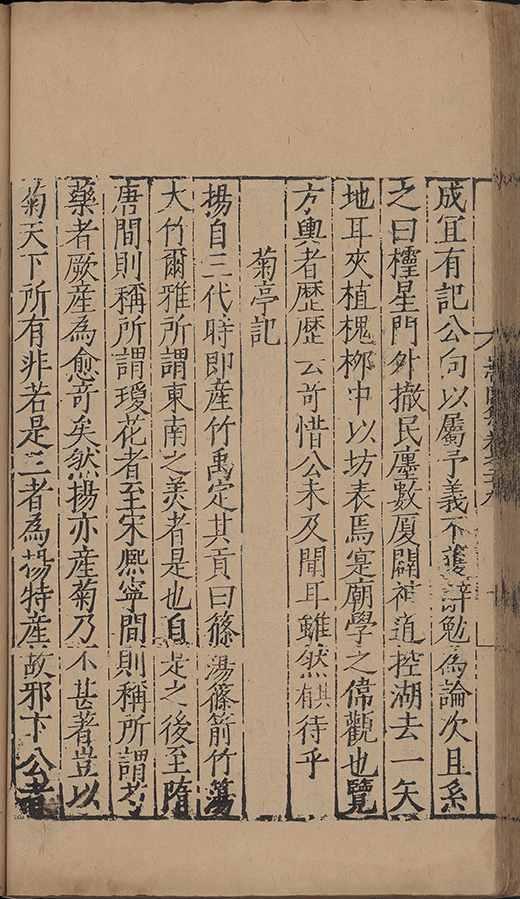 成宜有記公向以屬予義不獲辭勉為論次且系
之曰櫺星門外撤民廛數廈闢神道控湖去一矢
地耳夾植槐栁中以坊表焉寔廟學之偉觀也覽
方輿者歴歴云竒惜公未及聞耳雖然其有待乎
菊亭記
揚自三代時即產竹禹定其貢曰篠湯篠箭竹蕩
大竹爾雅所謂東南之美者是也自是之後至隋
唐間則稱所謂瓊花者至宋熈寧間則稱所謂芍
藥者厥產為愈竒矣然揚亦產菊乃不甚著豈以
菊天下所有非若是三者為揚特產故邪卞公者